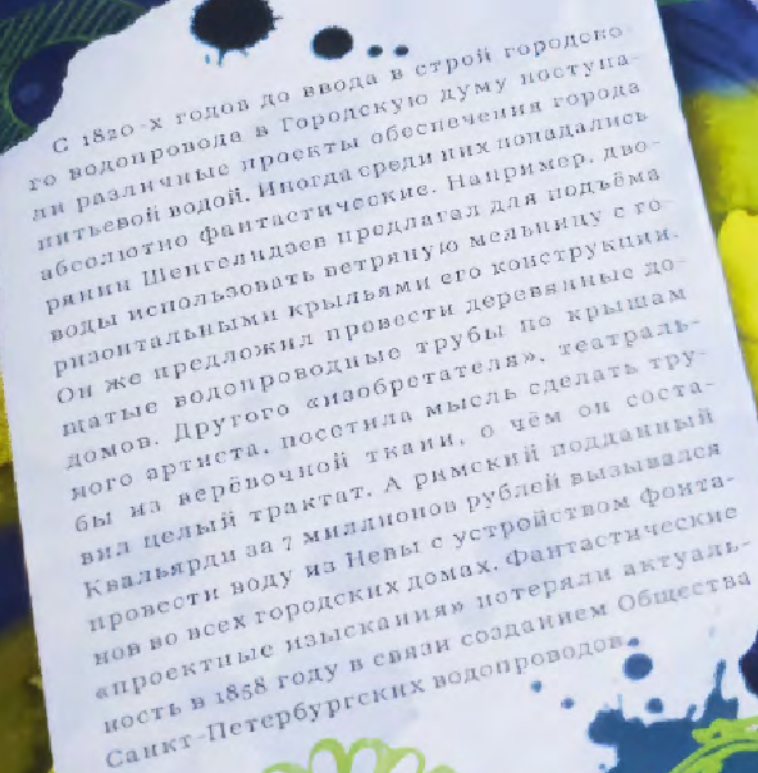 С 1820-х годов до ввода в строй городско-
го водопровода в Городскую думу поступа-
ли различные проекты обеспечения города
питьевой водой. Иногда среди них попадались
абсолютно фантастические. Например, дво-
рянин Шенгелидзев предлагал для подъёма
воды использовать ветряную мельницу с го-
ризонтальными крыльями его конструкции.
Он же предложил провести деревянные до-
щатые водопроводные трубы по крышам
домов. Другого «изобретателя», театраль-
ного артиста, посетила мысль сделать тру-
бы из верёвочной ткани, о чём он соста-
вил целый трактат. А римский подданный
Квальярди за 7 миллионов рублей вызывался
провести воду из Невы с устройством фонта-
нов во всех городских домах. Фантастические
«проектные изыскания» потеряли актуаль-
ность в 1858 году в связи созданием Общества
Санкт-Петербургских водопроводов.